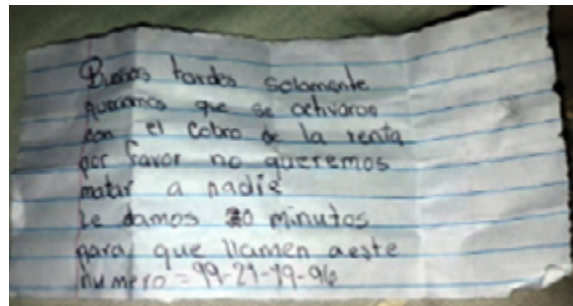 Buenas tardes solamente
queriamos que se activaron
con el cobro de la renta
por favor no queremos
matar a nadie
Le damos 20 minutos
para que llamen aeste
numero = 99-21-19-96